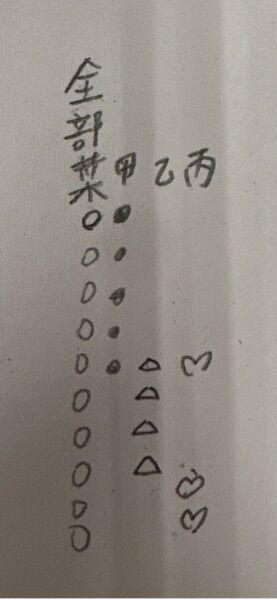 全
部
菜 甲 乙 丙